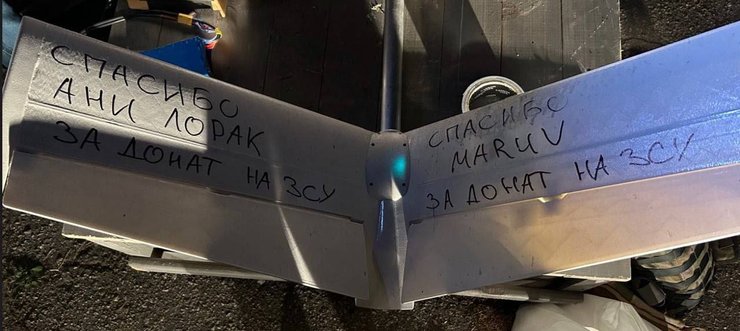 СПАСИБО
АНИ ЛОРАК
ЗА ДОНАТ НА ЗСУ
СПАСИБО
MARUV
ЗА ДОНАТ НА ЗСУ